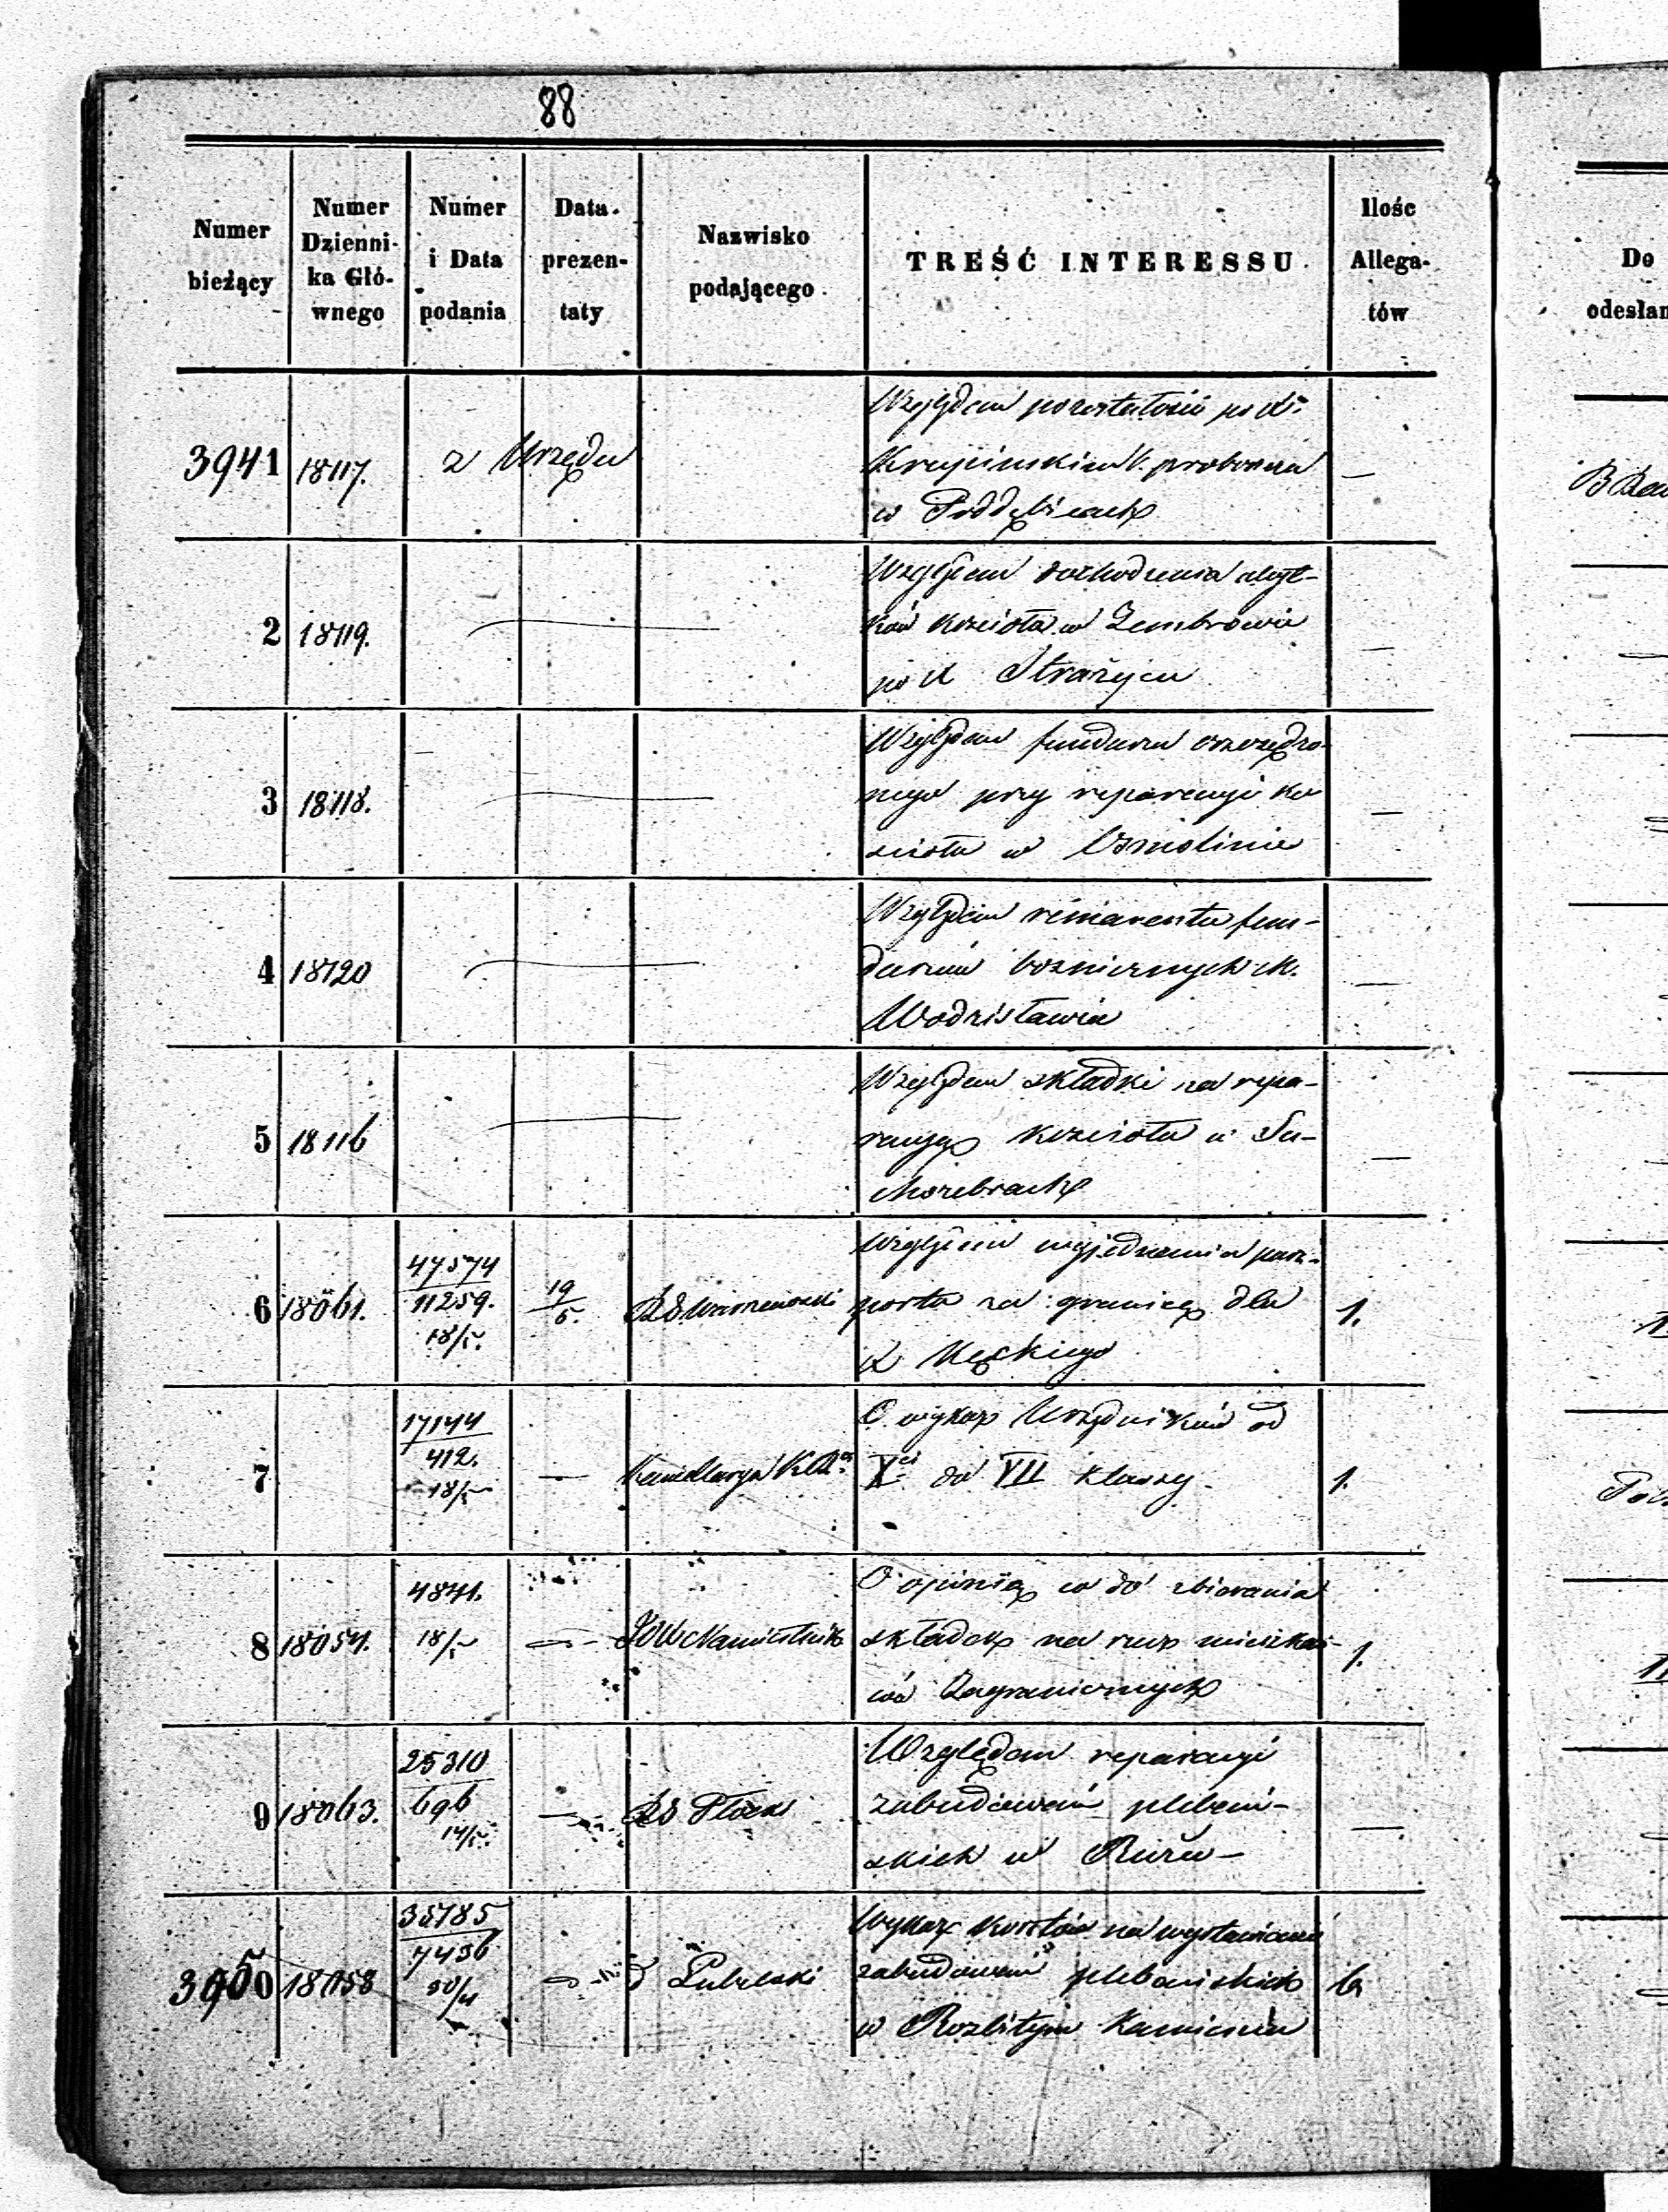 88
Numer bieżący
Numer Dzienni-
ka Głó-
wnego
Numer i Data podania
Data prezen-
taty
Nazwisko podającego
TREŚĆ INTERESSU
Ilośc Allega-
tów
Do
odesłan
3941
18117.
z Urzędu
Względem pozostałości po X.
Krajcińskim b. proboszcza
w Poddębicach
—
2
18119.
Względem dochodzenia
kościoła w Zembrowie
po X Strażycu
—
3
18118.
Względem funduszu oszczędzo-
nego przy reparacyi ko
ścioła w Osmolinie
—
4
18120
Względem remanentu fun-
duszów bożnicznych M.
Wodzisławia
—
5
18116
Względem składki na repa-
racyę kościoła w Su-
chorebrach
—
6
18061.
47574
11259.
18/5.
19
5.
RG Warszawski
Względem wyjednania pasz-
portu za granicę dla
X Męckiego
1.
7
17144
412.
18/5
—
Kancellarya
O wykaz Urzędników od
X do VII klassy
1.
8
18054.
4841.
18/5
JOW Namiestnik
O opinię co do zbierania
składek na rzecz mieszkań-
ców Zagranicznych
1.
9
18063.
25310
696
14/5.
—
RG Płocki
Względem reparacyi
zabudowań plebań-
skich w
—
3950
18058
35785
7436
30/4
Lubelski
Wykaz kosztów na wystawienie
zabudowań plebańskich
w Rozbitym Kamieniu
6